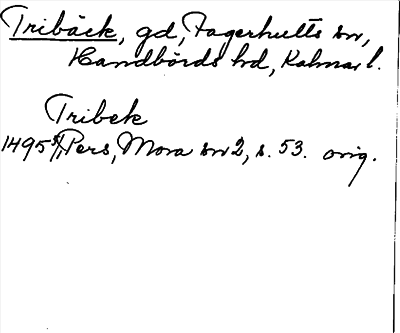 Tribäck, gd, Fagerhults sn,
Handbörds hd, Kalmar l.
Tribek
1495 5/1, Pers, Mora sn 2, s. 53. orig.